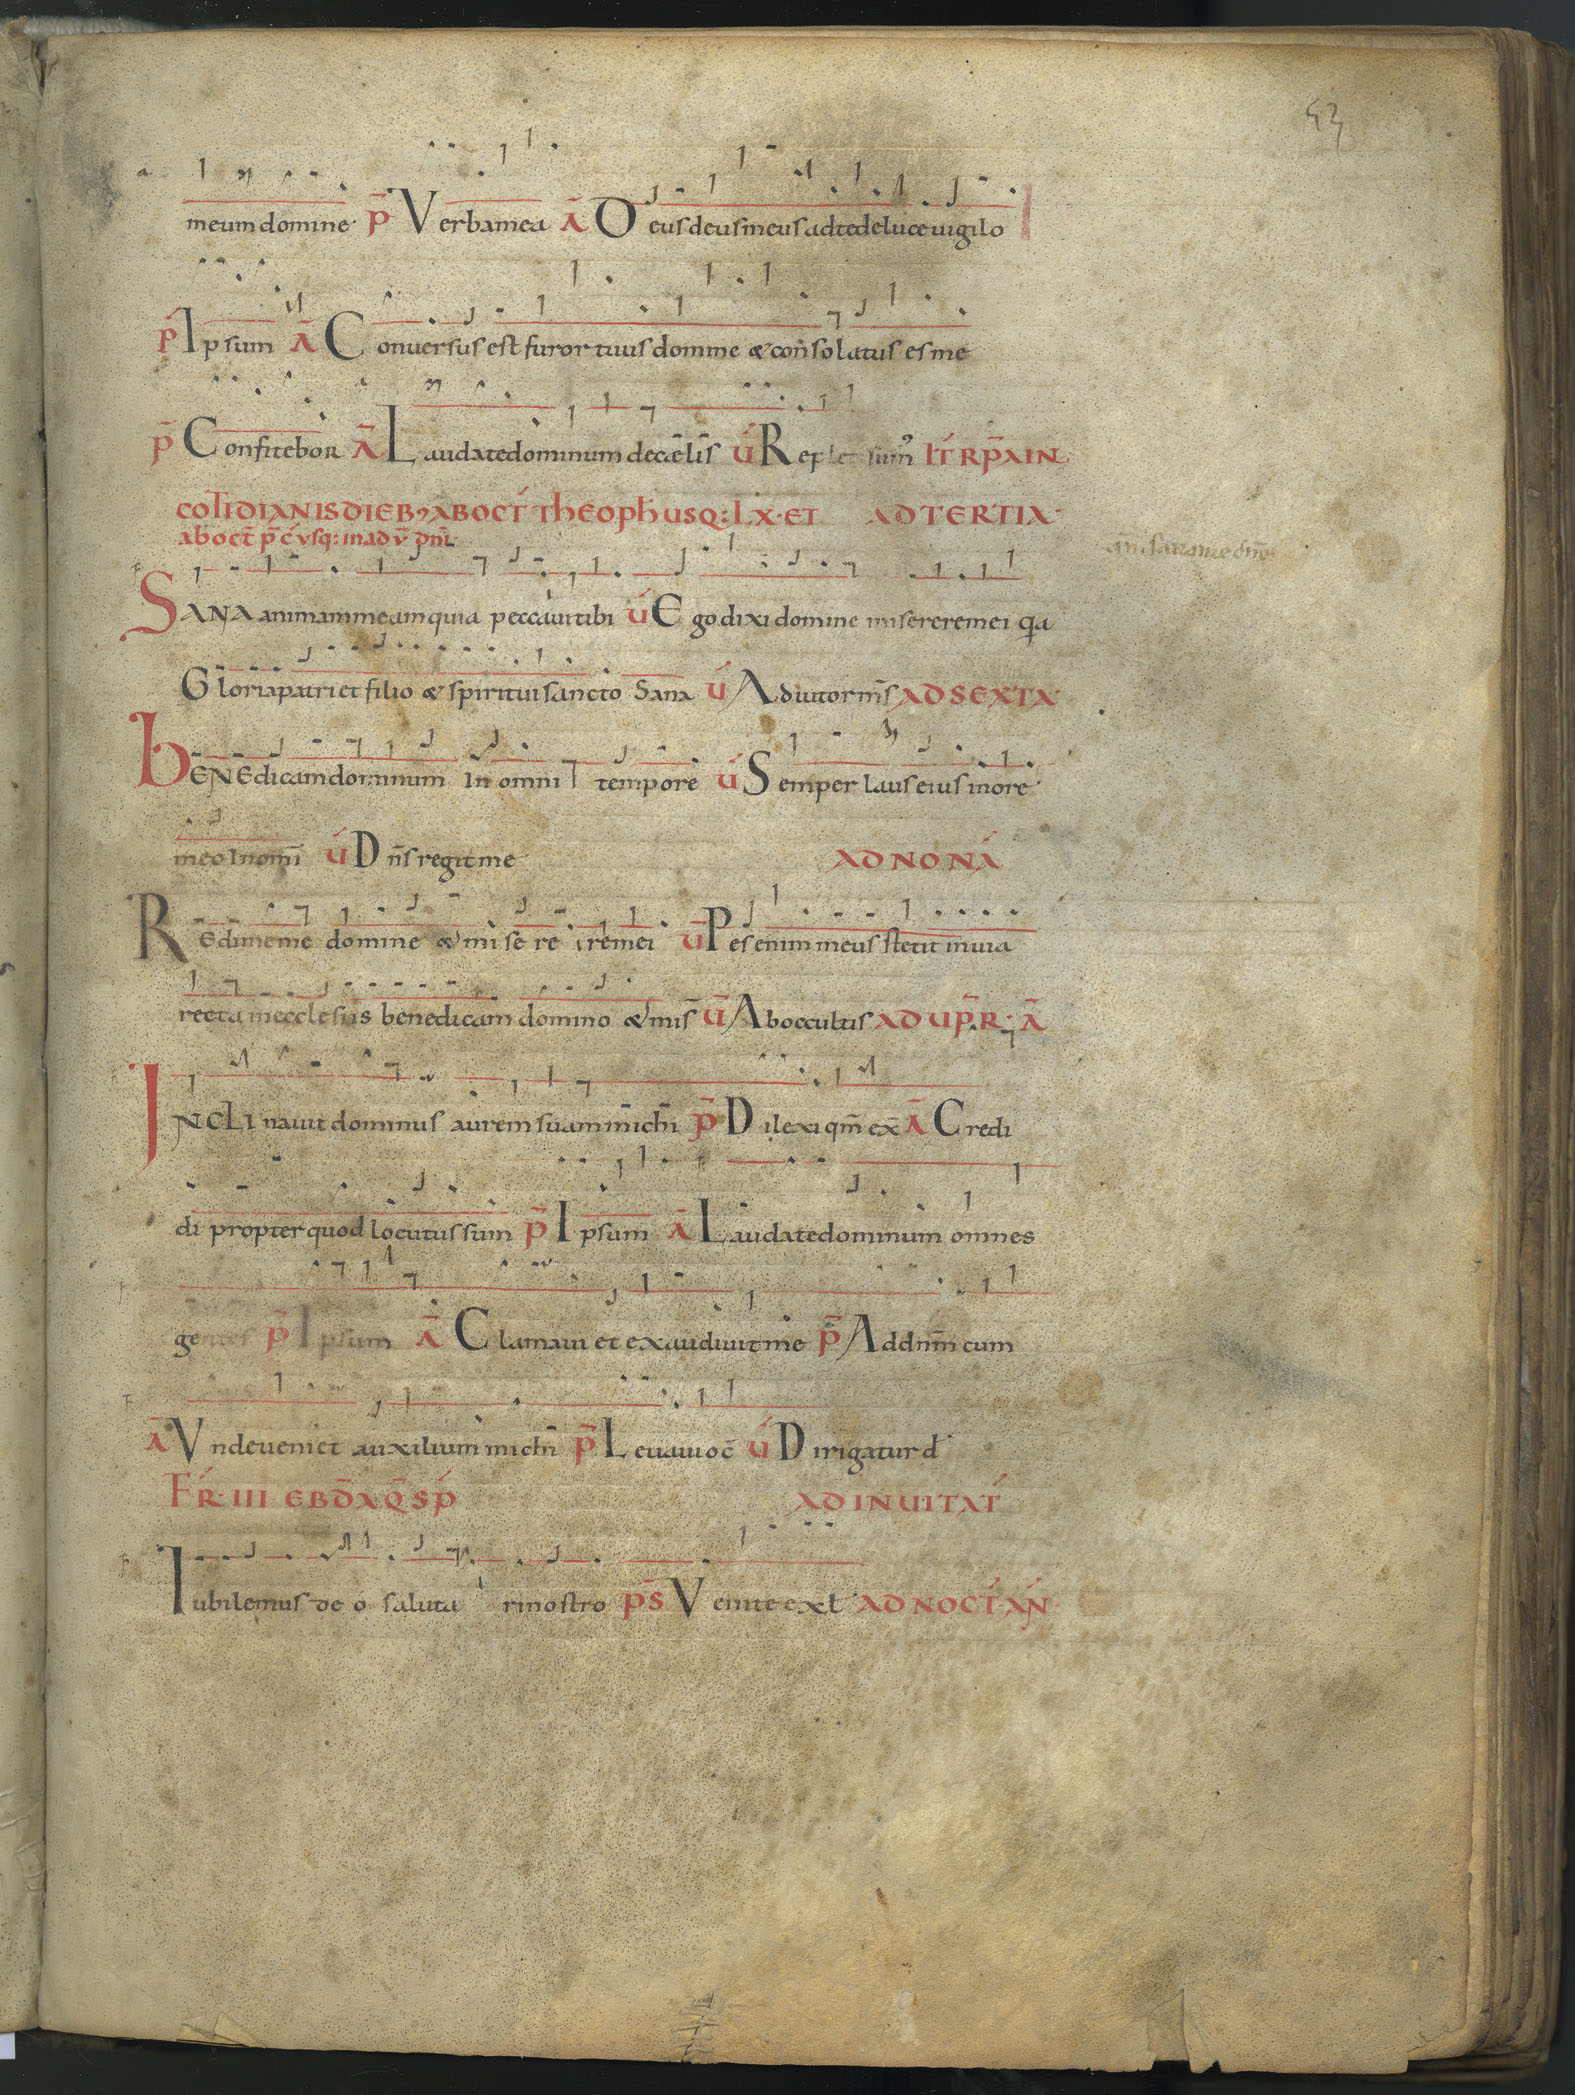 43
meum domine. p̄ Verba mea Ā Deus deus meus ad te de luce uigilo
p̄ Ipsum Ā Conuersus est furor tuus domine & consolatus es me
p̄ Confitebor Ā Laudate dominum de cęlis ú Repleti sum⁹ IT́ RP̄A IN
COTIDIANIS DIEB; AB OCT́ ThEOPhͫ USQ: LX. ET AD TERTIA.
ab oct̄ p̄c̄ vsq: in adv̄ dn̄i.
SANA animam meam quia peccaui tibi ú Ego dixi domine miserere mei q̇a
Gloria patri et filio & spiritui sancto Sana ú Adiutor m̄s AD SEXTA.
bENEdicam dominum In omni tempore ú Semper laus eius in ore
meo In om̄i ú Dn̄s regit me AD NONÁ
REdime me domine & mi se re re mei ū Pes enim meus stetit in uia
recta in ecclesiis benedicam domino & mis̄ ū Ab occultis AD UP̄R. Ā
INCLInauit dominus aurem suam michi p̄ Dilexi qm̄ ex̄ Ā Credi
di propter quod locutus sum p̄ Ipsum Ā Laudate dominum omnes
gentes p̄ Ipsum Ā Clamaui et exaudiuit me p̄ Ad dnm̄ cum
Ā Vnde ueniet auxilium michi p̄ Leuaui oc̄ ú Dirigatur d̄
FR̄. III EBD̄A Q̄ SṔ AD INUITAT́
Iubilemus de o saluta ri nostro ps̄ Venite exł AD NOCT́. AŃ